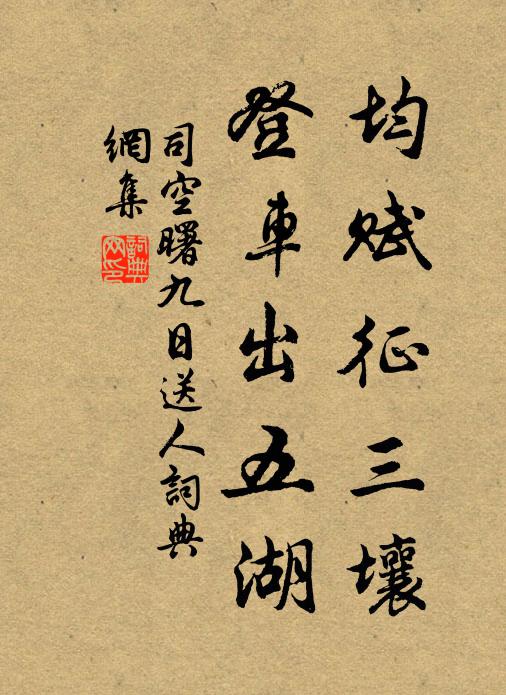 均赋征三壤
登車出五湖
司空曙九日送人詞典
網集
詞典
网印